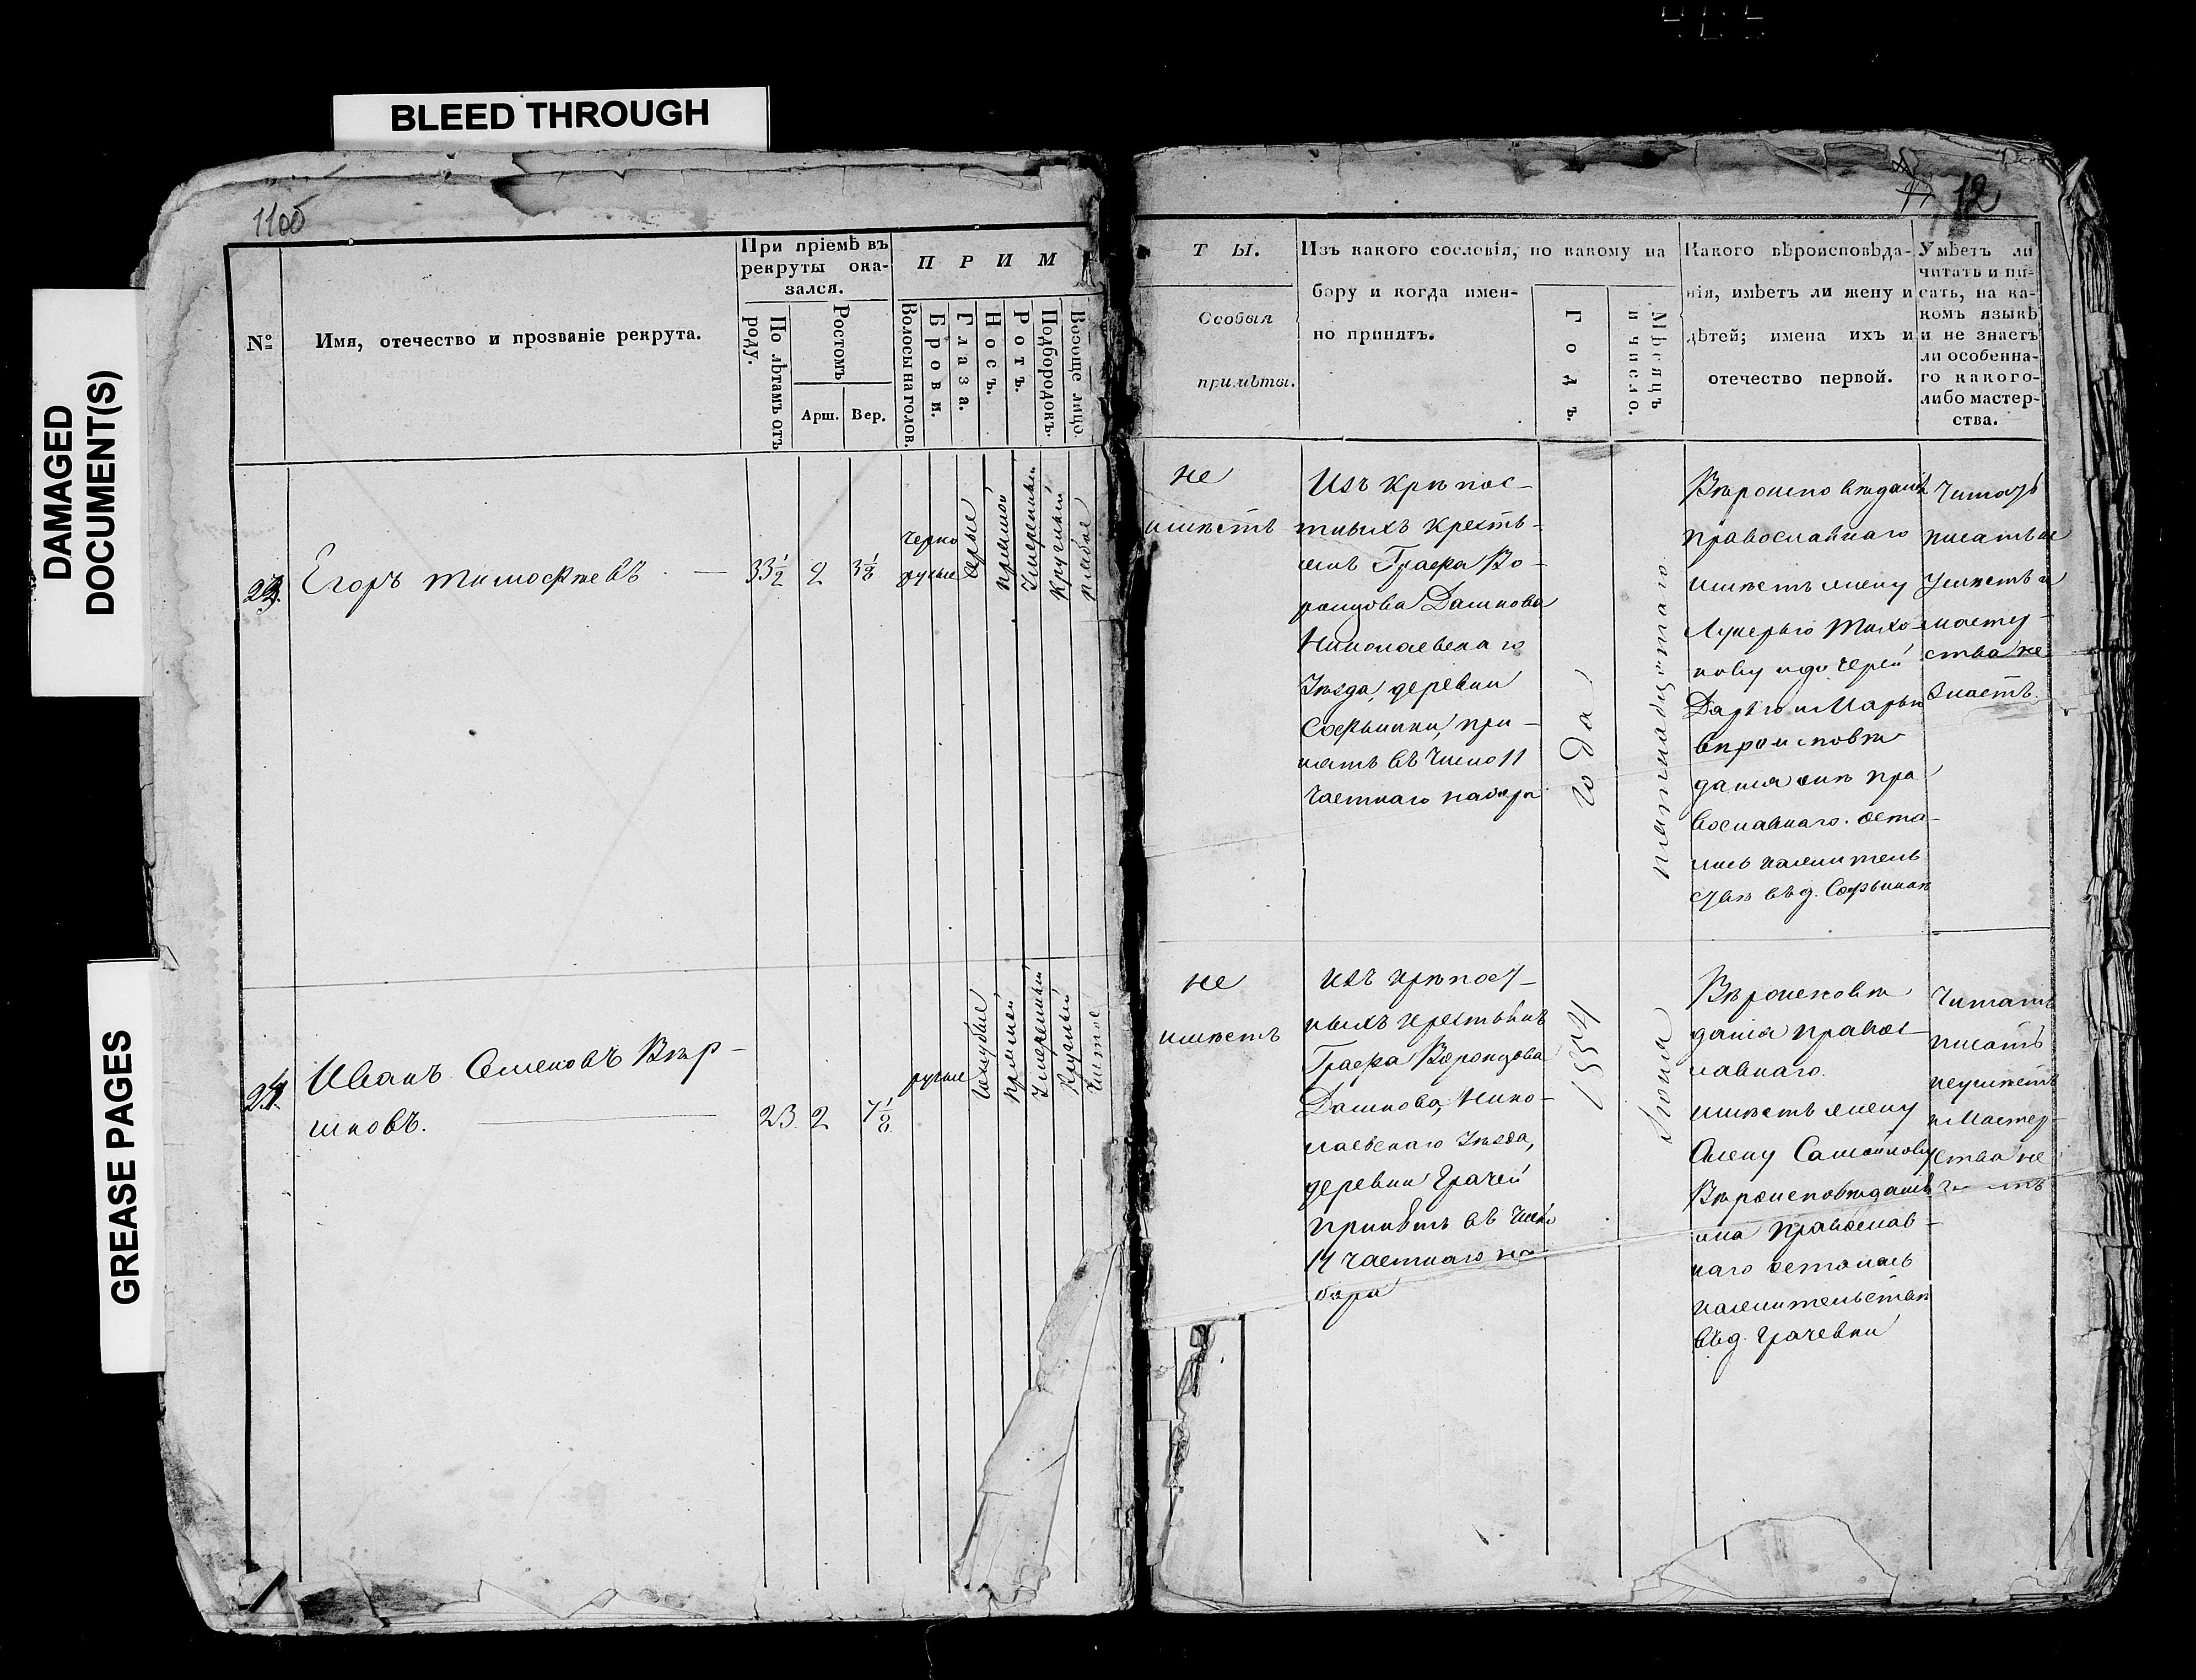 BLEED THROUGH
DAMAGED
DOCUMENT(S)
GREASE PAGES
1100
№
Имя, отечество и прозваніе рекрута.
При пріемѣ въ
рекруты ока-
зался.
По лѣтамъ отъ
роду.
Ростомъ
Арш.
Вер.
П Р И М
Волосы на голов.
Брови.
Глаза.
Носъ.
Ротъ.
Подбородокъ.
Вообще лицо.
23.
Егоръ Тимофѣевъ. —
33½
2
3⅛
Черно
русые
Сѣрые
прямой
Умеренный
Круглый
рябое
24.
Иванъ Семеновъ Вѣр-
шковъ.
23
2
7⅛
русые
Голубые
Прямой
Умеренный
Круглый
Чистое
12
Т Ы.
Особыя
примѣты.
Изъ какого сословія, по какому на
бору и когда имен-
но принятъ.
Годъ.
Мѣсяцъ
и число.
Какого вѣроисповѣда-
нія, имѣетъ ли жену и
дѣтей; имена ихъ и
отечество первой.
Умѣетъ ли
читать и пи-
сать, на ка-
комъ языкѣ
и не знаетъ
ли особенна-
го какого-
либо мастер-
ства.
не
имѣетъ
Изъ крѣпос-
тныхъ кресть-
янъ Графа Во-
ронцова Дашкова
Николаевскаго
Уѣзда, деревни
Софьинки, при-
нятъ въ число 11
Частнаго набора
1854
года
Июня
пятнадцатаго
Вѣроисповѣданія
православнаго
имѣетъ жену
Лукерью Тихо-
нову и дочерей
Дарью и Марью
вѣроисповѣ-
данія онѣ пра-
вославнаго. Оста-
лись на жительс
твѣ въ д. Софьинкѣ
Читать
писать не
умѣетъ и
мастер-
ства не
знаетъ.
не
имѣетъ
Изъ крѣпост-
ныхъ крестьянъ
Графа Воронцова
Дашкова, Нико-
лаевскаго Уѣзда,
деревни Грачей
принятъ въ число
11 частнаго на-
бора
Вѣроисповѣ
данія правос-
лавнаго.
имѣетъ жену
Алену
Вѣроисповѣдані
она православ-
наго осталась
на жительствѣ
въ д. Грачевки
Читать
писать
неумѣетъ
и Мастер-
ства не